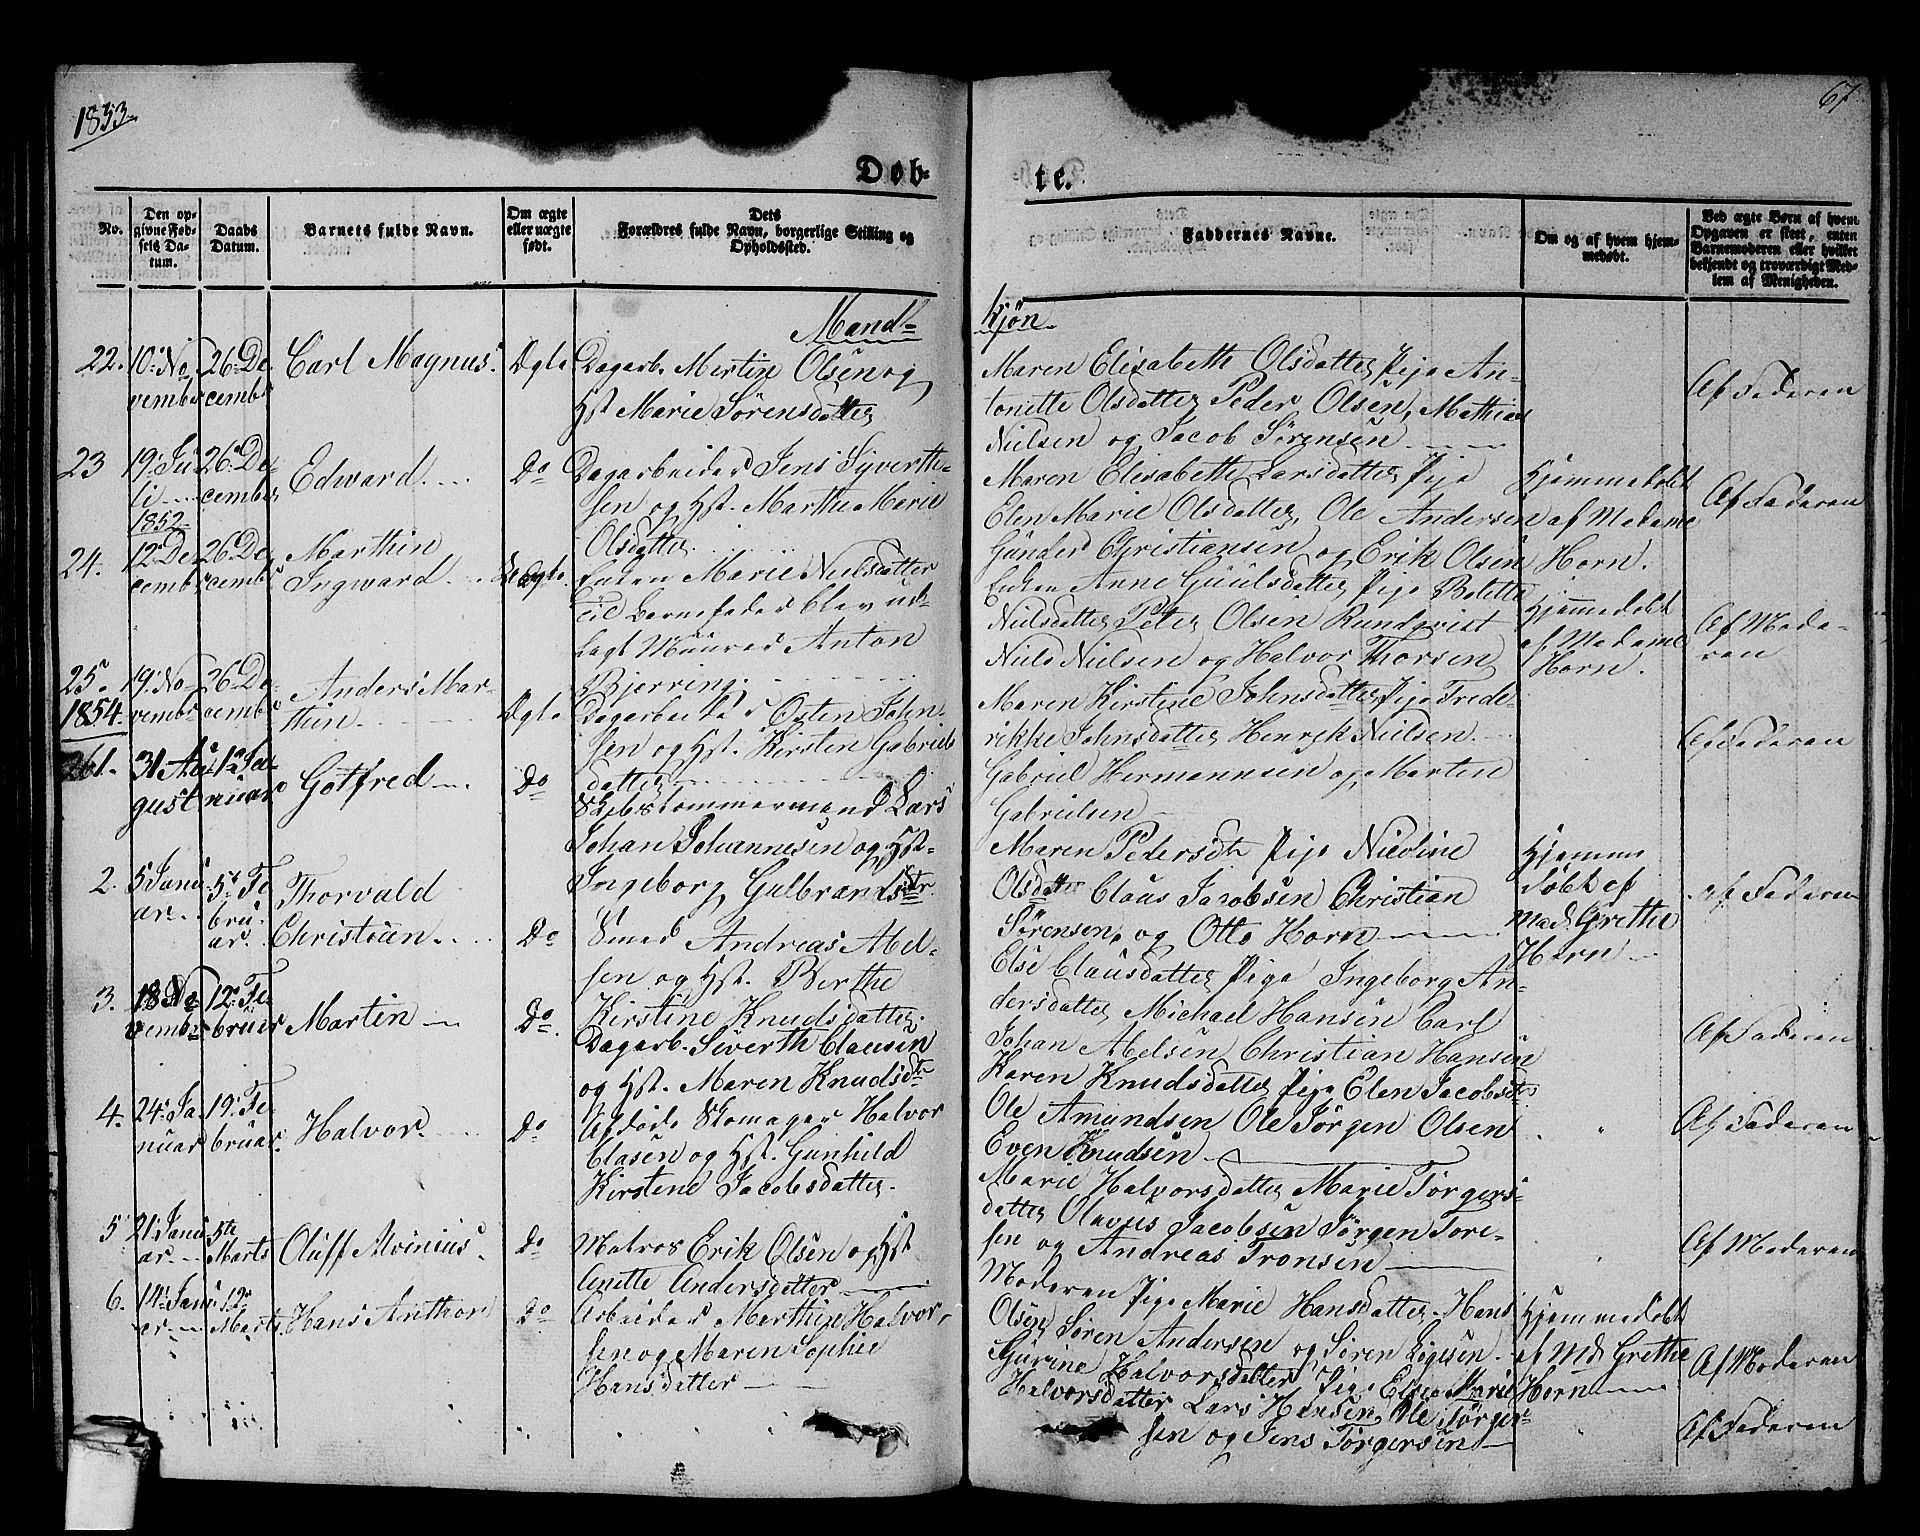 1853.
67
Døb-
te.
No.
Den op-
givne Fød-
sels Da-
tum.
Daabs
Datum.
Barnets fulde Navn.
Om ægte
eller uægte
født.
Dets
Forældres fulde Navn, borgerlige Stilling og
Opholdssted.
Faddernes Navne.
Om og af hvem hjem-
medøbt.
Ved ægte Børn af hvem
Opgaven er skeet, enten
Barnemoderen eller hvilket
bekjendt og troværdigt Med-
lem af Menigheden.
Mand-
kjøn
22. 10. No
vembr
26. De
cembr
Carl Magnus.
Ægte
Dagarb. Mertin Olsen og
Hst Marie Sörensdatter
Maren Elisabeth Olsdatter Pige An-
tonette Olsdatter Peder Olsen, Mathias
Nielsen og Jacob Sörensen
Af Faderen
23
19. Ju
li
1852
26. De
cember
Edward
Do
Dagarbeider Jens Syverth-
sen og Hst. Marthe Marie
Olsdatter
Maren Elisabeth Larsdatter Pige
Elen Marie Olsdatter, Ole Andersen
Gunder Christiansen og Erik Olsen
Hjemmedøbt
af Madame
Horn.
Af Faderen
24.
12. De
cembr
26. De
cembr
Marthin
Ingward
Uægte.
Enken Marie Nielsdatter
til Barnefader blev ud-
lagt Muurer Anton
Bjerring.
Enken Anne Guulsdatter Pige Bolette
Nielsdatter Peter Olsen Rundqvist
Niels Nielsen og Halvor Thorsen
Hjemmedøbt
af Madame
Horn.
Af Mode-
ren
25.
19. No
vembr
26. De
cembr
Anders Mar-
thin
Ægte
Dagarbeider Osten John-
sen og Hst. Kirsten Gabriels
datter
Maren Kirstine Johnsdatter Pige Frede-
rikke Johnsdatter Henrik Nielsen
Gabriel Hermannsen og Marten
Gabrielsen
Af Faderen
1854.
1.
31 Au-
gust
1. Ja-
nuar
Gotfred
Do
Skibstømmermand Lars
Johan Johannesen og Hst-
Ingeborg Gulbrandsdtr
Maren Pedersdtr Pige Nicoline
Olsdatter Claus Jacobsen Christian
Sørensen, og Otto Horn
Hjemme
døbt af
Mad. Grethe
Horn
Af Faderen
2.
5 Janu
ar.
5. Fe
bru-
ar.
Thorvald
Christian
Do
Smed Andreas Abel-
sen og Hst. Berthe
Kirstine Knudsdatter
Else Clausdatter Pige Ingeborg An-
dersdatter Michael Hansen Carl
Johan Abelsen Christian Hansen
Af Faderen
3.
18 De
cembr
12. Fe
bruar
Martin
Do
Dagarb. Siverth Clausen
og Hst. Maren Knudsdtr
Karen Knudsdatter Pige Elen Jacobsdtr
Ole Amundsen Ole Jørgen Olsen
Even Knudsen
Af Faderen
4.
24. Ja
nuar
19. Fe
bruar.
Halvor.
Do
Afdøde Skomager Halvor
Clasen og Hst. Gunhild
Kirstine Jacobsdatter
Marie Halvorsdatter Marie Jørgens-
datter Olavus Jacobsen Jørgen Tore-
sen og Andreas Tronsen
Af Moderen
5
21. Janu
ar.
5te
Marts
Oluff Alvinius
Do
Matros Erik Olsen og Hst
Anette Andersdatter
Moderen Pige Marie Hansdatter Hans
Olsen Søren Andersen og Søren
Hjemmedøbt
af Md. Grethe
Horn
Af Moderen
6.
14. Janu
ar
12.
Marts
Hans Anthon
Do
Arbeider Marthin Halvor-
sen og Maren Sophie
Hansdatter
Gurine Halvorsdatter Pige Elise Marie
Halvorsdatter Lars Hansen, Ole Jørgen-
sen og Jens Jørgensen
Af Faderen